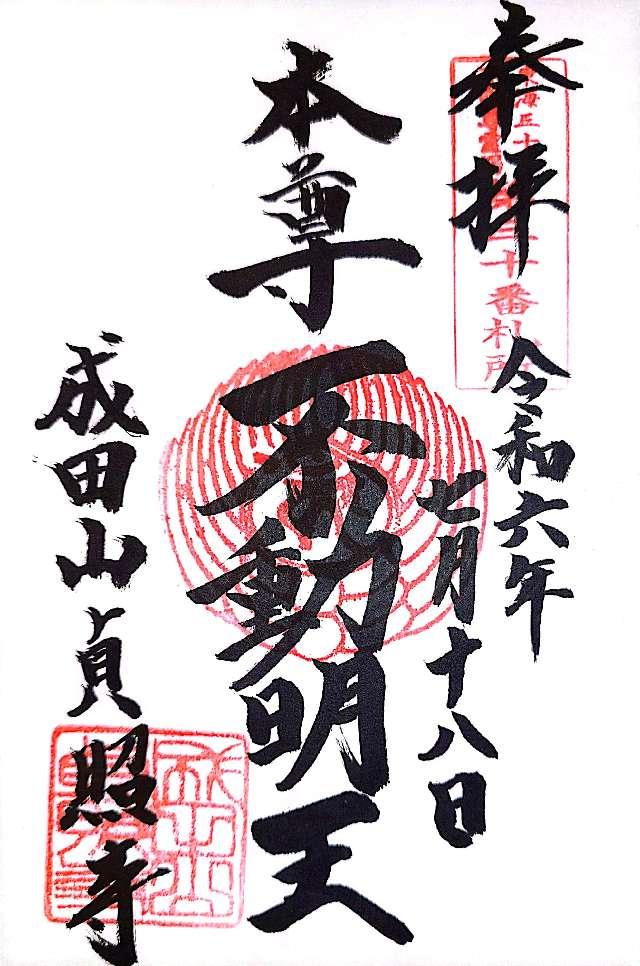 奉拝
令和六年
七月十八日
本尊
不動明王
成田山貞照寺
十番札所